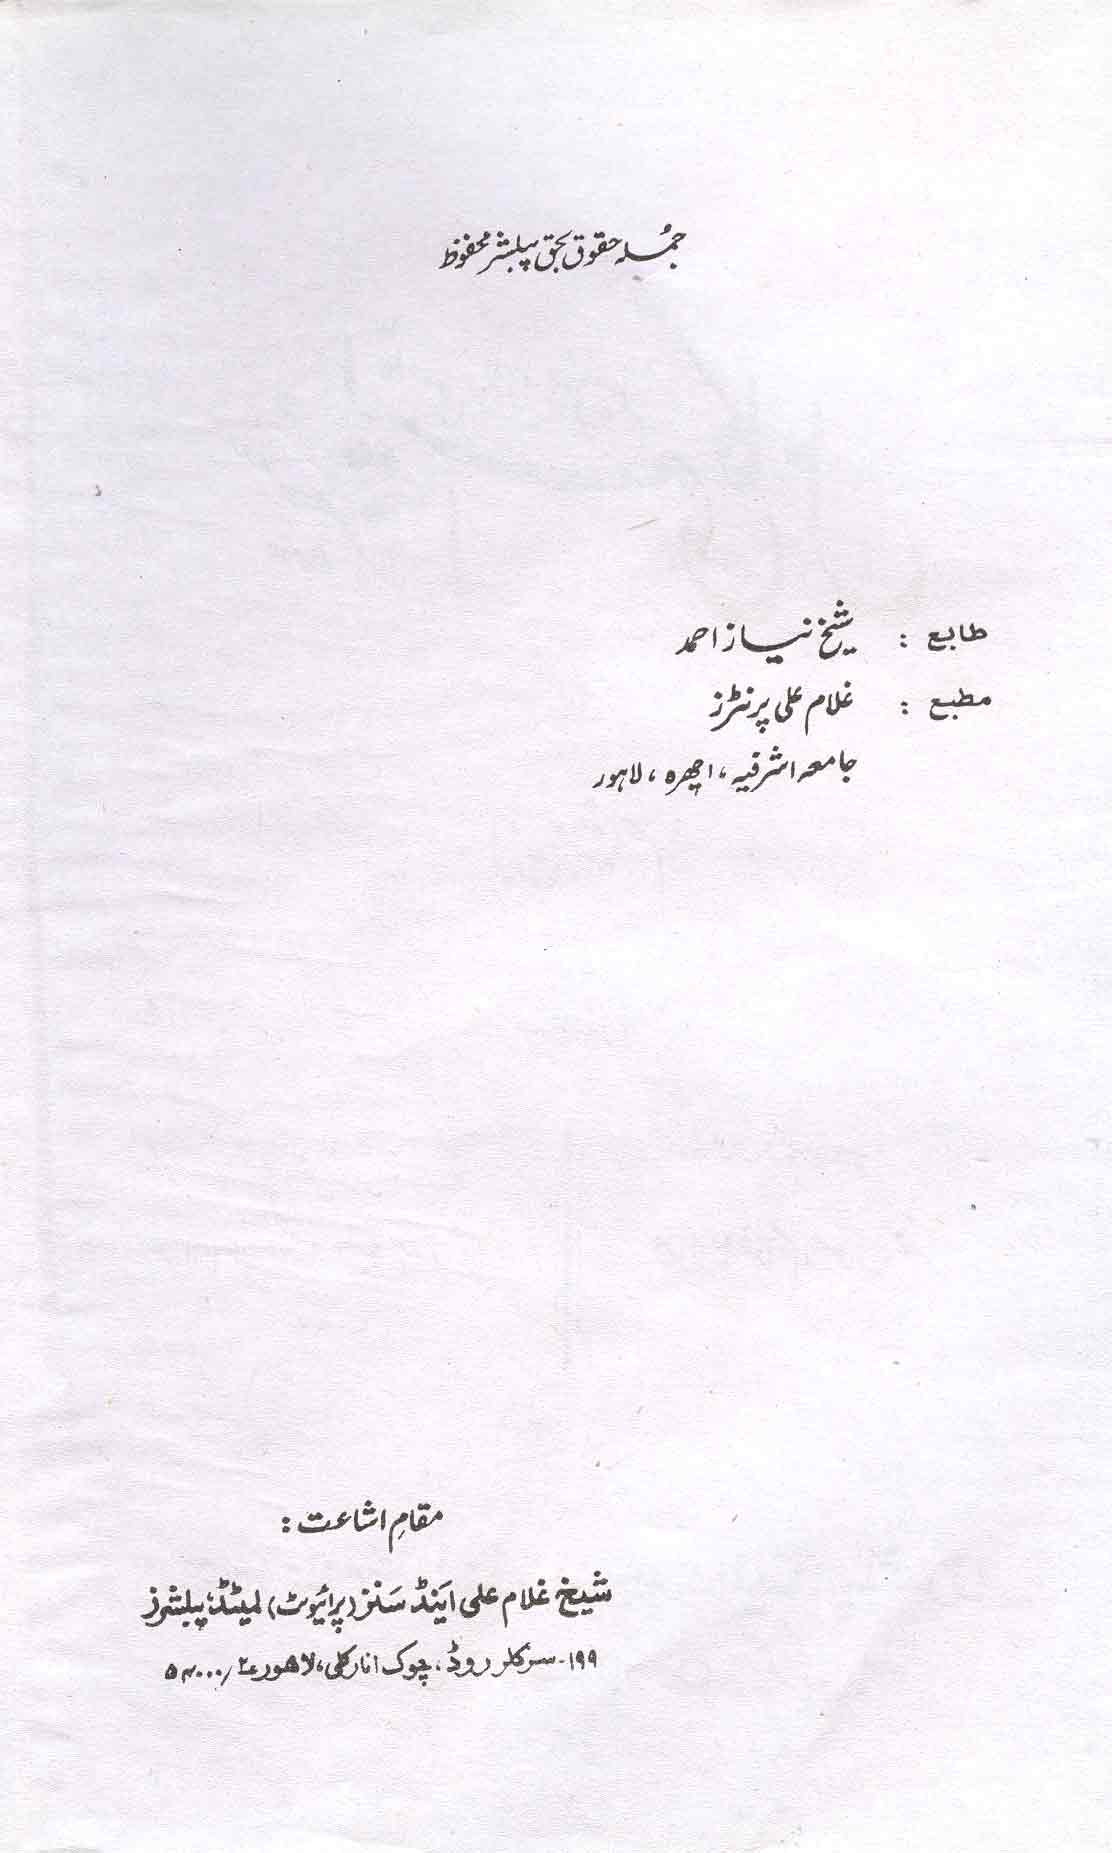 جملہ حقوق بحق پبلشر محفوظ
طابع : شیخ نیاز احمد
مطبع : غلام علی پرنٹرز
جامعہ اشرفیہ، اچھرہ، لاہور
مقامِ اشاعت :
شیخ غلام علی اینڈ سنز (پرائیوٹ) لمیٹڈ، پبلشرز
۱۹۹- سرکلر روڈ، چوک انارکلی، لاہور ۲/ ۵۴۰۰۰